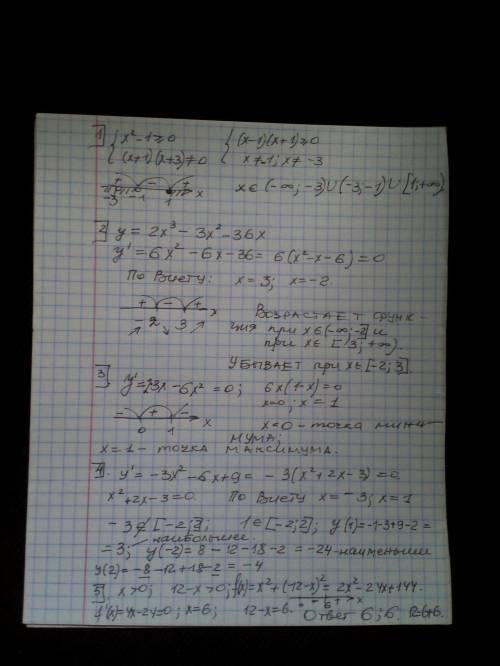 1 { x²-1≥0 { (x-1)(x+1)≥0
(x+1)(x+3)≠0 x≠-1; x≠-3
+ - + x x∈(-∞;-3)∪(-3;-1)∪[1;+∞)
-3 -1 1
2 y = 2x³ - 3x² - 36x
y' = 6x² - 6x - 36 = 6(x²-x-6) = 0
По Виету: x = 3; x = -2
+ - + x
-2 3 Возрастает функ-
ция при x∈(-∞;-2] и
при x∈[3;+∞).
Убывает при x∈[-2;3].
3 6x - 6x² = 0; 6x(1-x)=0
x=0; x=1
- + - x
0 1 x=0 - точка мини-
мума;
x=1 - точка максимума.
4 y' = -3x² - 6x + 9 = -3(x²+2x-3)=0
x²+2x-3=0. По Виету x=-3; x=1
-3∉[-2;2]; 1∈[-2;2]; y(1)=-1-3+9-2=
= 3; наибольшее. y(-2) = 8-12-18-2 = -24 - наименьшее
y(2) = -8-12+18-2 = -4
5 x>0; 12-x>0; f(x)=x²+(12-x)² = 2x²-24x+144.
f'(x)=4x-24=0; x=6; 12-x=6. - 6 + x Ответ 6; 6. 12=6+6.